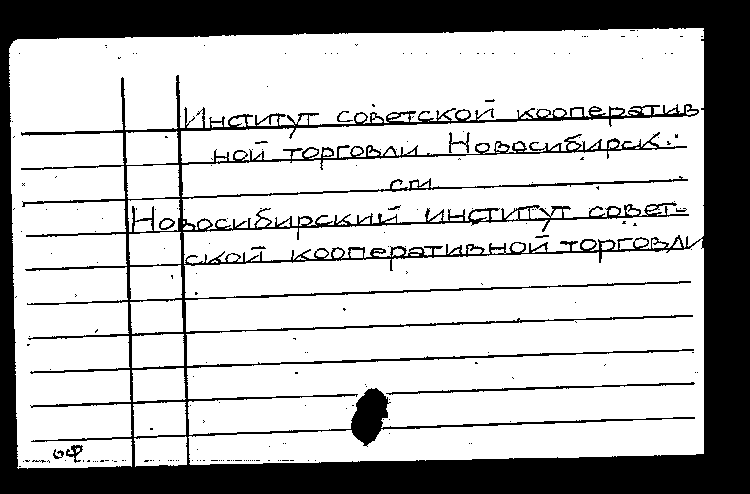 Институт советской кооператив-
ной торговли. Новосибирск.
см
Новосибирский институт совет-
ской кооперативной торговли
оф